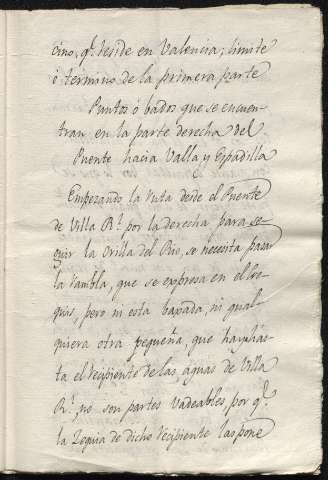 cino, q.e reside en Valencia; limite
ó termino de la primera parte
Puntos ó bados que se encuen-
tran en la parte derecha del
Puente hacia Valla y Espadilla
Empezando la ruta desde el Puente
de Villa R.l por la derecha para se-
guir la Orilla del Rio, se necesita pasar
la rambla, que se expresa en el Cro-
quis, pero ni esta baxada, ni qual
quiera otra pequeña, que hay has-
ta el recipiente de las aguas de Villa
R.l, no son partes vadeables, por q.e
la Zequia de dicho recipiente las pone